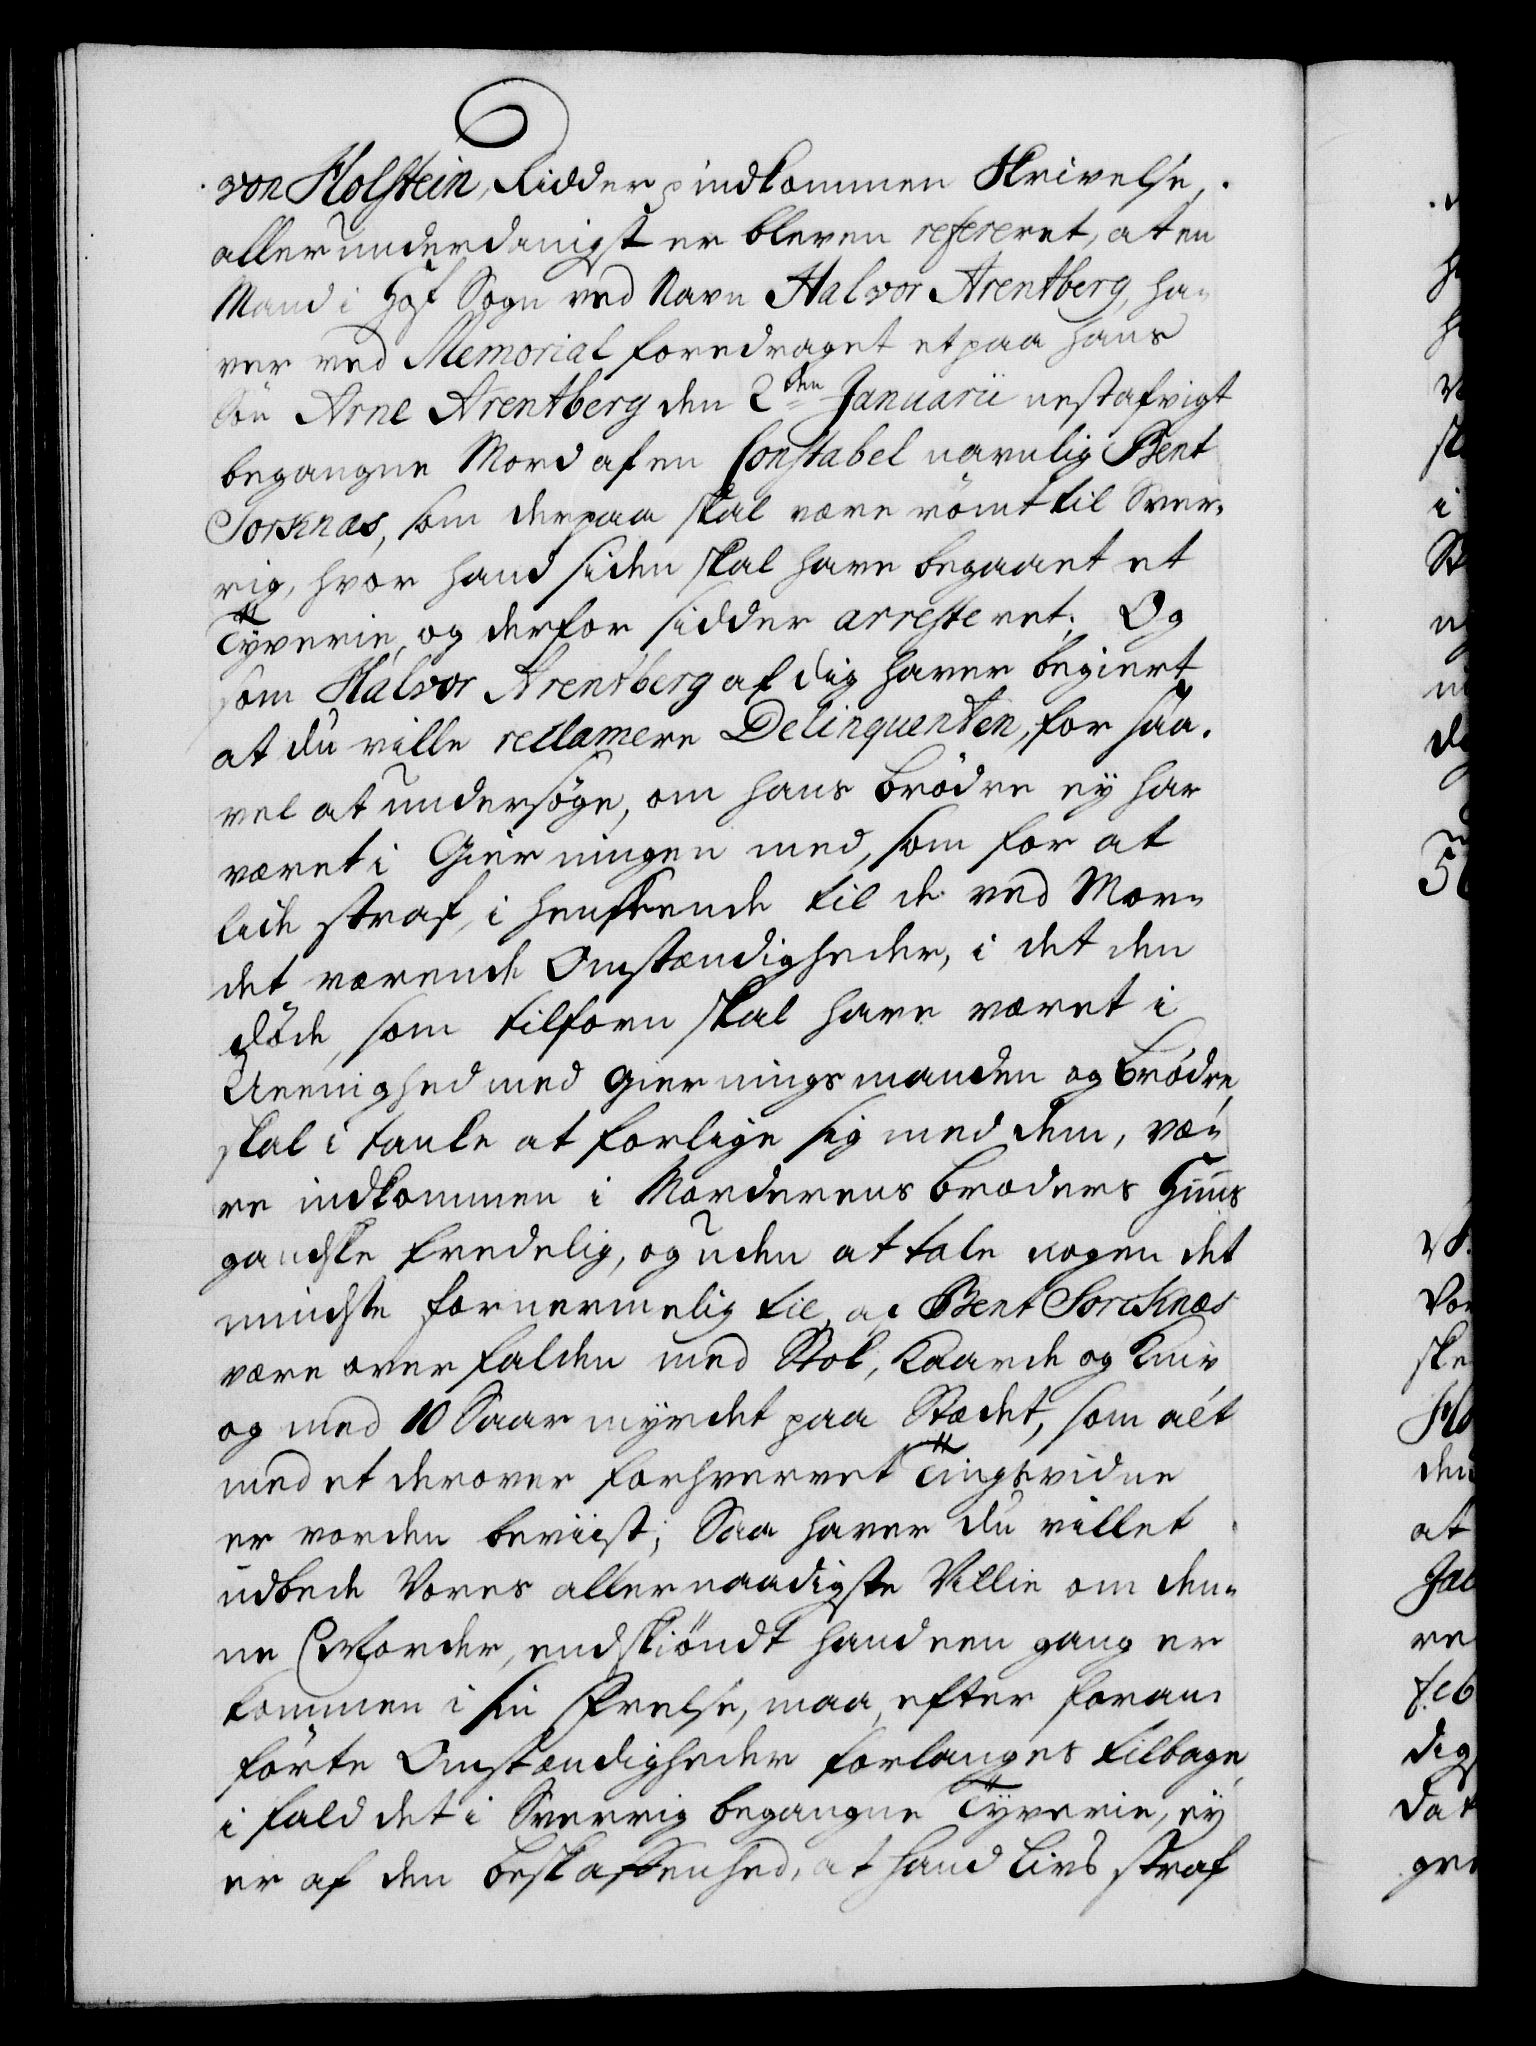 von Holstein, Ridder p indkommen Skrivelse,
allerunderdanigst er bleven refereret, at en
Mand i Hof Sogn ved Navn Halvor Arentberg, ha-
ver ved Memorial foredraget et paa hans
Sön Arne Arentberg den 2den Januarii nestafvigt
begangne Mord af en Constabel navnlig Bent
Sorknæs, som derpaa skal være römt til Sver-
rig, hvor hand siden skal have begaaet et
Tyverie, og derfor sidder arresteret; Og
som Halvor Arentberg af dig haver begiert
at du ville reclamere Delinquenten, for saa-
vel at undersöge, om hans Brödre ey har
været i Gierningen med, som for at
lide straf, i henseende til de ved Mor-
det værende Omstændigheder, i det den
döde, som tilforn skal have været i
Ueenighed med Gierningsmanden og Brödre,
skal i tanke at forlige sig med dem, væ-
re indkommen i Morderens Broders Huus
gandske fredelig, og uden at tale nogen det
mindste fornermelig til, af Bent Sorcknæs
være overfalden med Stok, Kaarde og Kniv
og med 10 Saar myrdet paa Stædet, som alt
med et derover forhvervet Tingsvidne
er vorden beviist; Saa haver du villet
udbede Vores allernaadigste Villie om den-
ne Morder, endskiöndt hand een gang er
kommen i sin Frelse, maa, efter foran-
förte Omstændigheder forlanges tilbage,
i fald det i Sverrig begangne Tyverie, ey
er af den beskaffenhed, at hand Livs straf